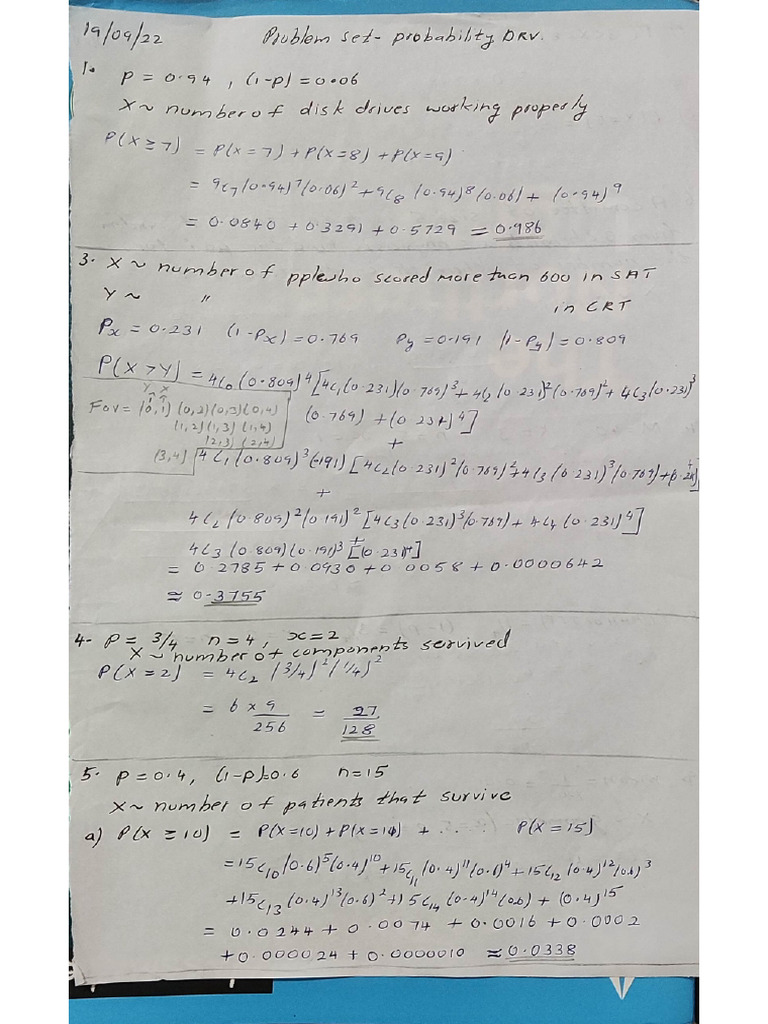 19/09/22 Problem set - probability DRV.
1. p = 0.94 , (1-p) = 0.06
X ~ number of disk drives working properly
P(X ≥ 7) = P(X = 7) + P(X = 8) + P(X = 9)
= 9C7 (0.94)^7 (0.06)^2 + 9C8 (0.94)^8 (0.06) + (0.94)^9
= 0.0840 + 0.3291 + 0.5729 = 0.986
3. X ~ number of pple who scored more than 600 in SAT
Y ~ " in CRT
Px = 0.231 (1-Px) = 0.769 Py = 0.191 (1-Py) = 0.809
P(X > Y) = 4C0 (0.809)^4 [4C1 (0.231)(0.769)^3 + 4C2 (0.231)^2 (0.769)^2 + 4C3 (0.231)^3
Y X
Fav = (0,1) (0,2) (0,3) (0,4) (0.769) + (0.231)^4]
(1,2) (1,3) (1,4) +
(2,3) (2,4)
(3,4) 4C1 (0.809)^3 (.191) [4C2 (0.231)^2 (0.769)^2 + 4C3 (0.231)^3 (0.769) + (0.231)^4]
+
4C2 (0.809)^2 (0.191)^2 [4C3 (0.231)^3 (0.769) + 4C4 (0.231)^4]
+
4C3 (0.809) (0.191)^3 [(0.231)^4]
= 0.2785 + 0.0930 + 0.0058 + 0.0000642
≈ 0.3755
4. P = 3/4 n = 4, x = 2
X ~ number of components survived
P(X = 2) = 4C2 (3/4)^2 (1/4)^2
= 6 × 9 / 256 = 27 / 128
5. p = 0.4, (1-p) = 0.6 n = 15
X ~ number of patients that survive
a) P(X ≥ 10) = P(X = 10) + P(X = 11) + . . . P(X = 15)
= 15C10 (0.6)^5 (0.4)^10 + 15C11 (0.4)^11 (0.6)^4 + 15C12 (0.4)^12 (0.6)^3
+ 15C13 (0.4)^13 (0.6)^2 + 15C14 (0.4)^14 (0.6) + (0.4)^15
= 0.0244 + 0.0074 + 0.0016 + 0.0002
+ 0.000024 + 0.0000010 ≈ 0.0338